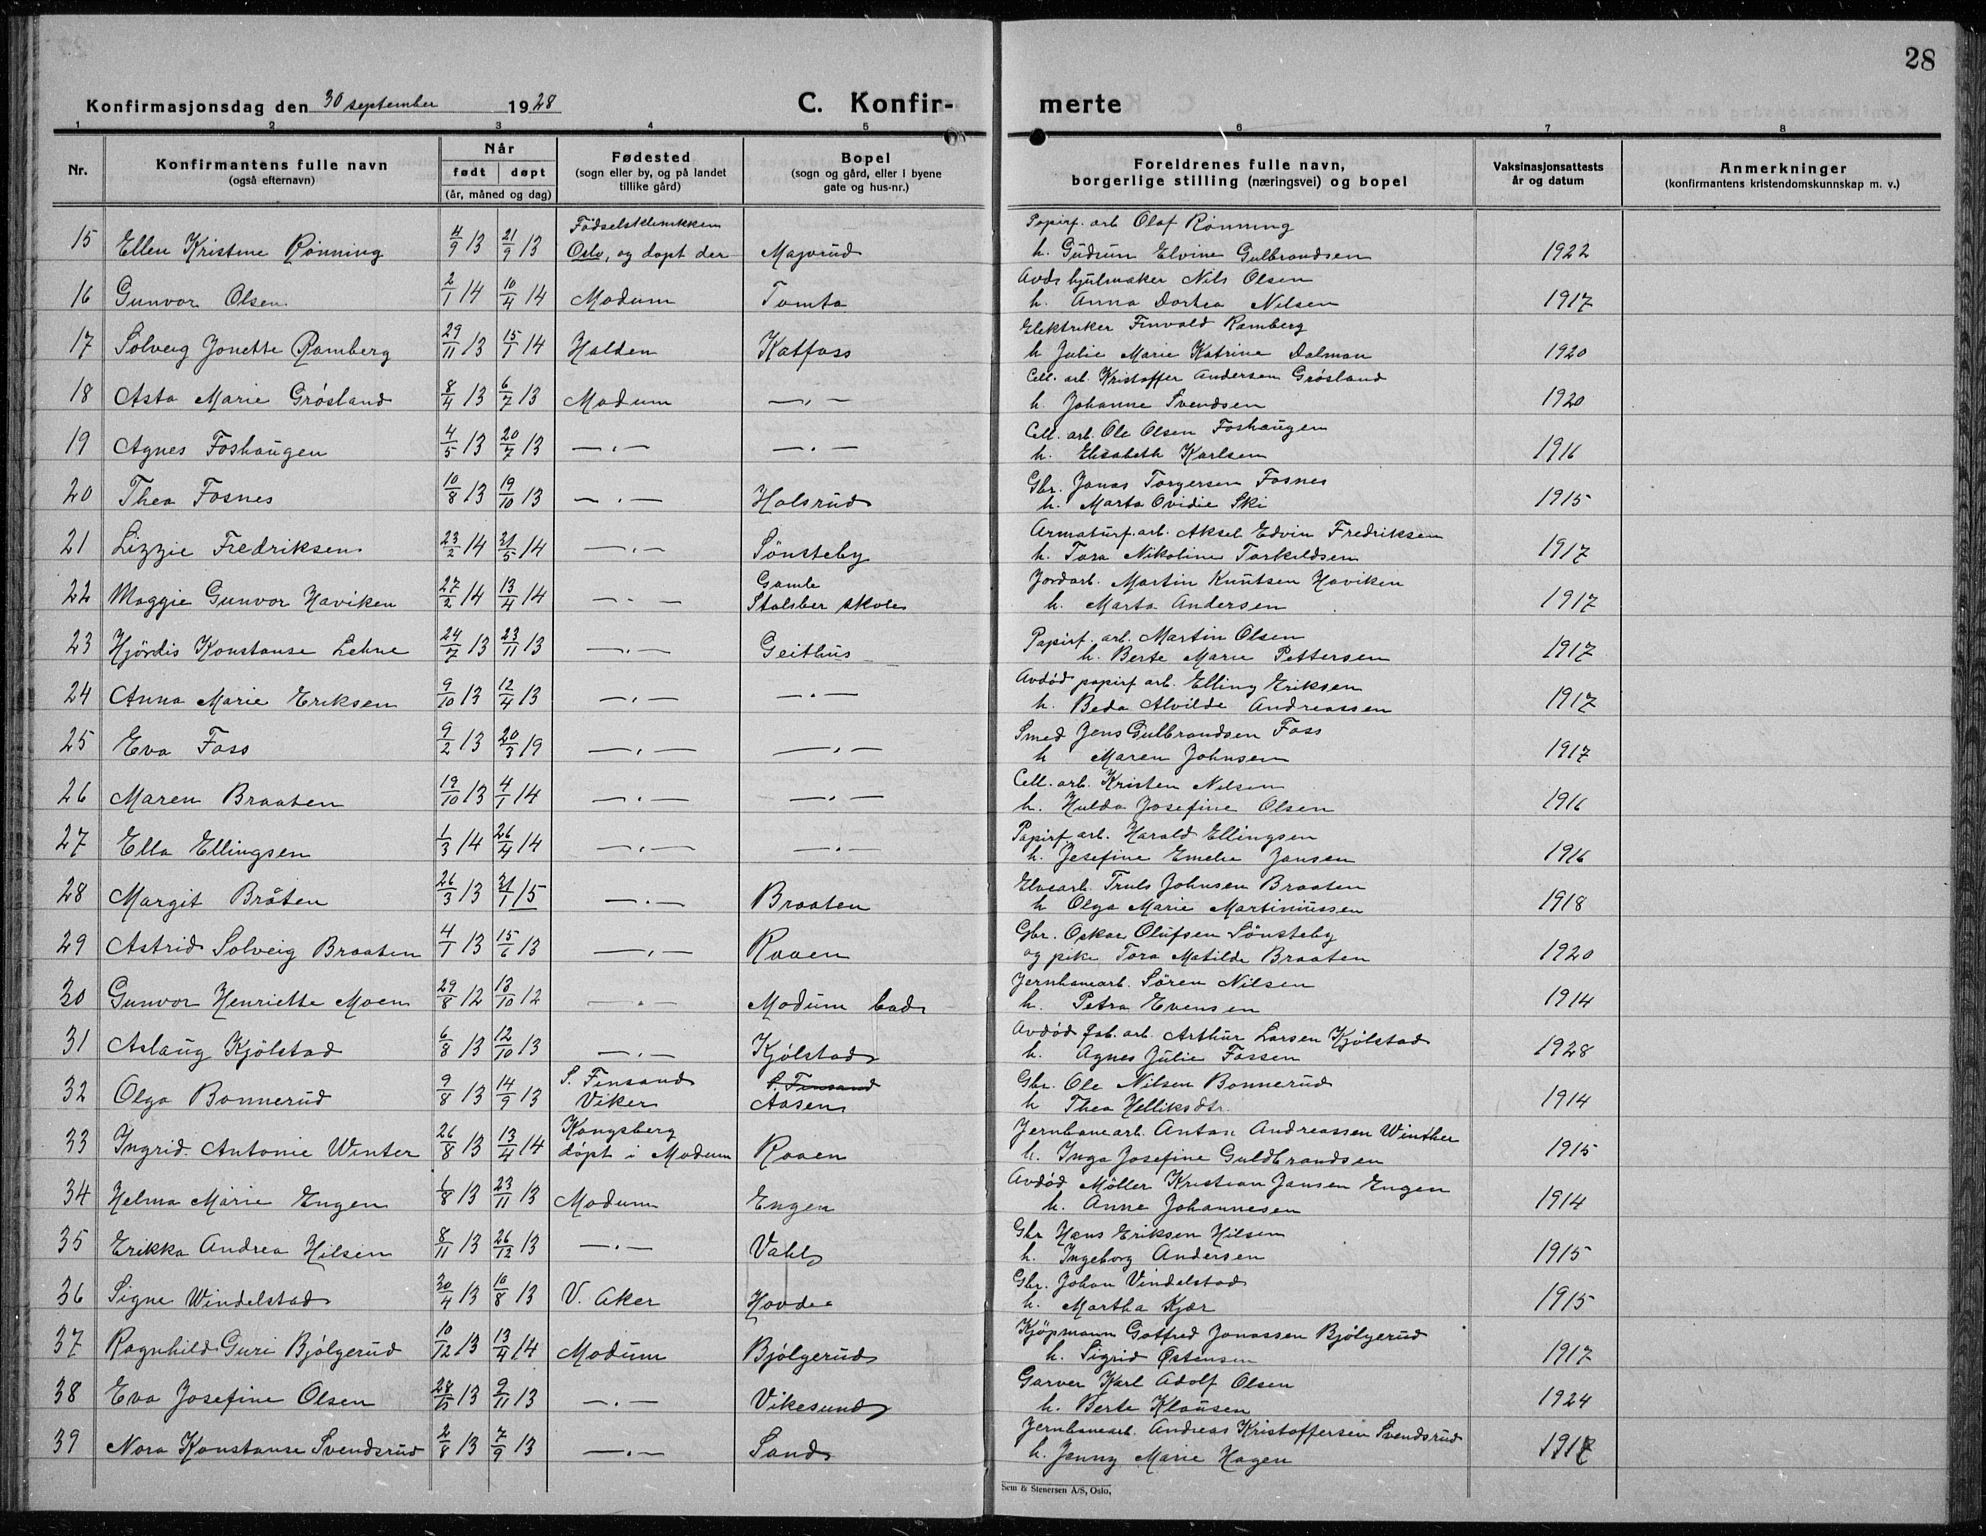 28
Konfirmasjonsdag den 30 september 1928 C. Konfirmerte
1 2 3 4 5 6 7 8
Nr. Konfirmantens fulle navn (også efternavn) Når født døpt (år, måned og dag) Fødested (sogn eller by, og på landet tillike gård) Bopel (sogn og gård, eller i byene gate og hus-nr.) Foreldrenes fulle navn, borgerlige stilling (næringsvei) og bopel Vaksinasjonsattests år og datum Anmerkninger (konfirmantens kristendomskunnskap m. v.)
15 Ellen Kristine Rønning 4/9 13 21/9 13 Fødselsklinikken Oslo, og døpt der Majorud Papirf. arb. Olaf Rønning
h. Gudrun Elvine Gulbrandsen 1922
16 Gunvor Olsen 2/1 14 10/4 14 Modum Tomta Avds hjulmaker Nils Olsen
h. Anna Dortea Nilsen 1917
17 Solveig Jonette Ramberg 29/11 13 15/1 14 Halden Katfoss Elektriker Finvald Ramberg
h Julie Marie Katrine Dalman 1920
18 Asta Marie Grøsland 8/4 13 6/7 13 Modum —„— Cell. arb. Kristoffer Andersen Grøsland
h. Johanne Svendsen 1920
19 Agnes Foshaugen 4/5 13 20/7 13 —„— —„— Cell. arb. Ole Olsen Foshaugen
h. Elisabeth Karlsen 1916
20 Thea Fosnes 10/8 13 19/10 13 —„— Halsrud Gbr. Jonas Torgersen Fosnes
h. Marta Ovidie Ski 1915
21 Lizzie Fredriksen 23/2 14 21/5 14 —„— Sønsteby Armaturf. arb. Aksel Edvin Fredriksen
h. Tora Nikoline Torkildsen 1917
22 Maggie Gunvor Haviken 27/2 14 13/4 14 —„— Gamle Stalsber skole Jordarb. Martin Knutsen Haviken
h. Marta Andersen 1917
23 Hjørdis Konstanse Lehne 24/7 13 23/11 13 —„— Geithus Papirf. arb. Martin Olsen
h. Berte Marie Pettersen 1917
24 Anna Marie Eriksen 9/10 13 12/4 13 —„— —„— Avdød papirf arb. Elling Eriksen
h. Beda Alvilde Andreassen 1917
25 Eva Foss 9/2 13 20/3 19 —„— —„— Smed Jens Gulbrandsen Foss
h Maren Johnsen 1917
26 Maren Braaten 19/10 13 4/1 14 —„— —„— Cell. arb. Kristen Nilsen
h. Hulda Josefine Olsen 1916
27 Ella Ellingsen 1/3 14 26/4 14 —„— —„— Papirf arb. Harald Ellingsen
h. Jesefine Emelie Jansen 1916
28 Margit Bråten 26/3 13 31/1 15 —„— Braaten Elvearb. Truls Johnsen Braaten
h Olga Marie Martiniussen 1918
29 Astrid Solveig Braaten 4/1 13 15/6 13 —„— Raaen Gbr. Oskar Olufsen Sønsteby
og pike Tora Matilde Braaten 1920
30 Gunvor Henriette Moen 29/8 12 13/10 12 —„— Modum bad Jernbanearb. Søren Nilsen
h. Petra Evensen 1914
31 Aslaug Kjølstad 6/8 13 12/10 13 —„— Kjølstad Avdød fab. arb. Arthur Larsen Kjølstad
h. Agnes Julie Fossen 1928
32 Olga Bonnerud 9/8 13 14/9 13 S. Finsand Viker S. Finsand Aasen Gbr. Ole Nilsen Bonnerud
h Thea Helliksdtr. 1914
33 Ingrid Antonie Winter 26/8 13 13/4 14 Kongsberg døpt i Modum Raaen Jernbanearb. Anton Andreassen Winther
h. Inga Josefine Guldbrandsen 1915
34 Helma Marie Engen 1/8 13 23/11 13 Modum Engen Avdød Møller Kristian Jansen Engen
h. Anne Johannesen 1914
35 Erikka Andrea Hilsen 8/11 13 26/12 13 —„— Vahl Gbr Hans Eriksen Hilsen
h. Ingeborg Andersen 1915
36 Signe Windelstad 20/4 13 10/8 13 V. Aker Hovde Gbr. Johan Vindelstad
h. Martha Kjær 1915
37 Ragnhild Guri Bjølgerud 10/12 13 13/4 14 Modum Bjølgerud Kjøpmann Gotfred Jonassen Bjølgerud
h. Sigrid Østensen 1917
38 Eva Josefine Olsen 13 9/11 13 —„— Vikesund Garver Karl Adolf Olsen
h. Berte Klausen 1924
39 Nora Konstanse Svendsrud 2/8 13 7/9 13 —„— Sand Jernbanearb. Andreas Kristoffersen Svendsrud
h. Jenny Marie Hagen 1917
Sem & Stenersen A/S, Oslo.